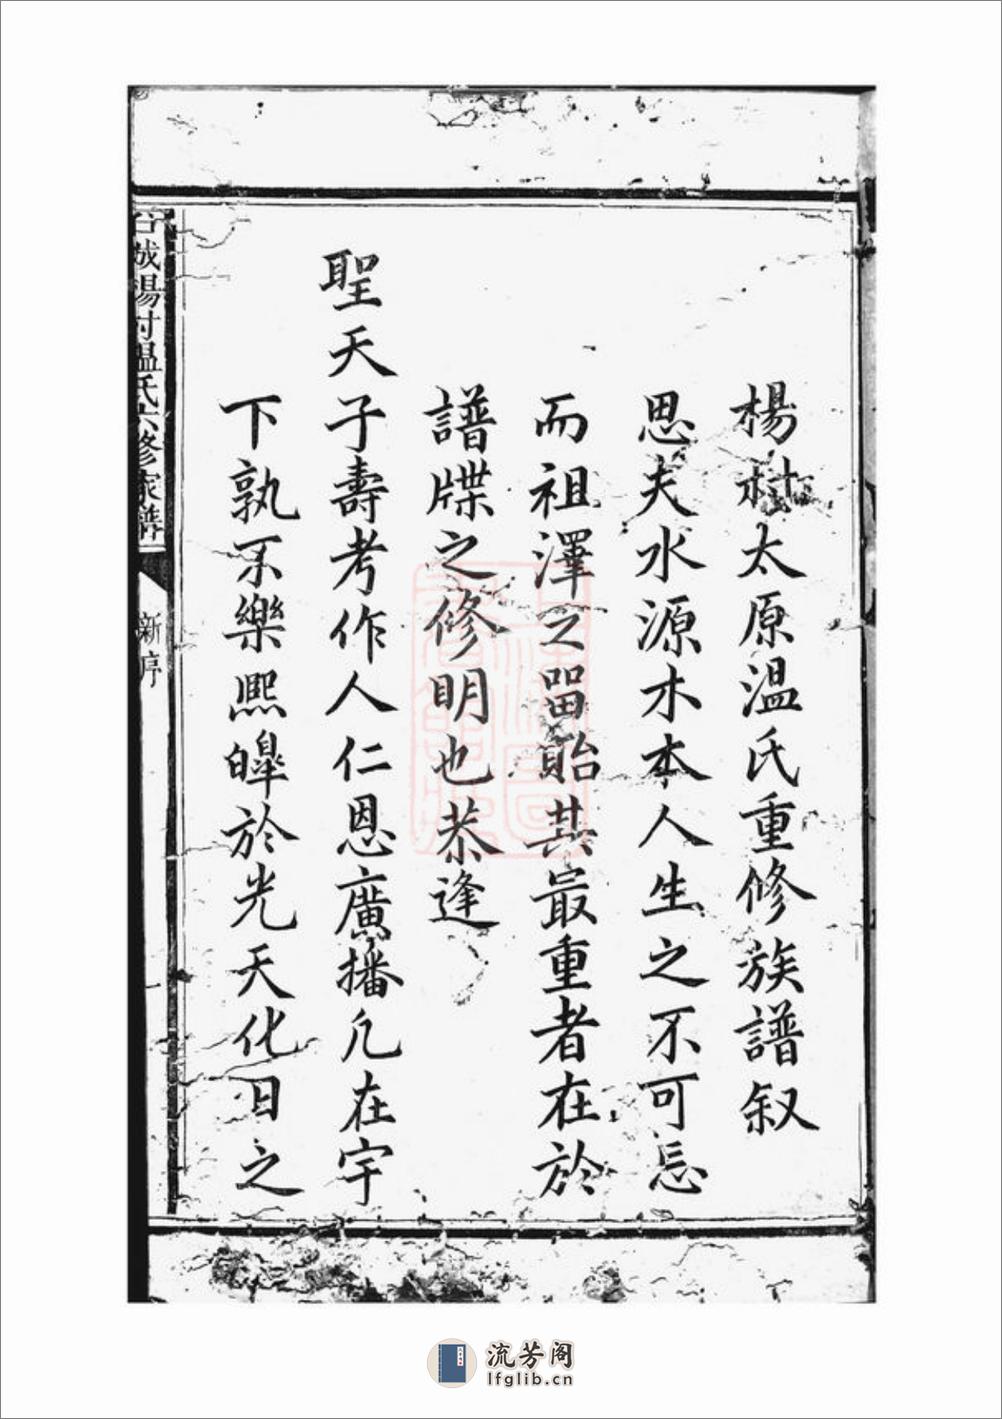 楊村太原溫氏重修族譜叙
思夫水源木本人生之不可忘
而祖澤之留貽其最重者在於
譜牒之修明也恭逢
聖天子壽考作人仁恩廣播凢在宇
下孰不樂熈皞於光天化日之
城湯村溫氏六修家譜
新序
流芳阁
lfglib.cn